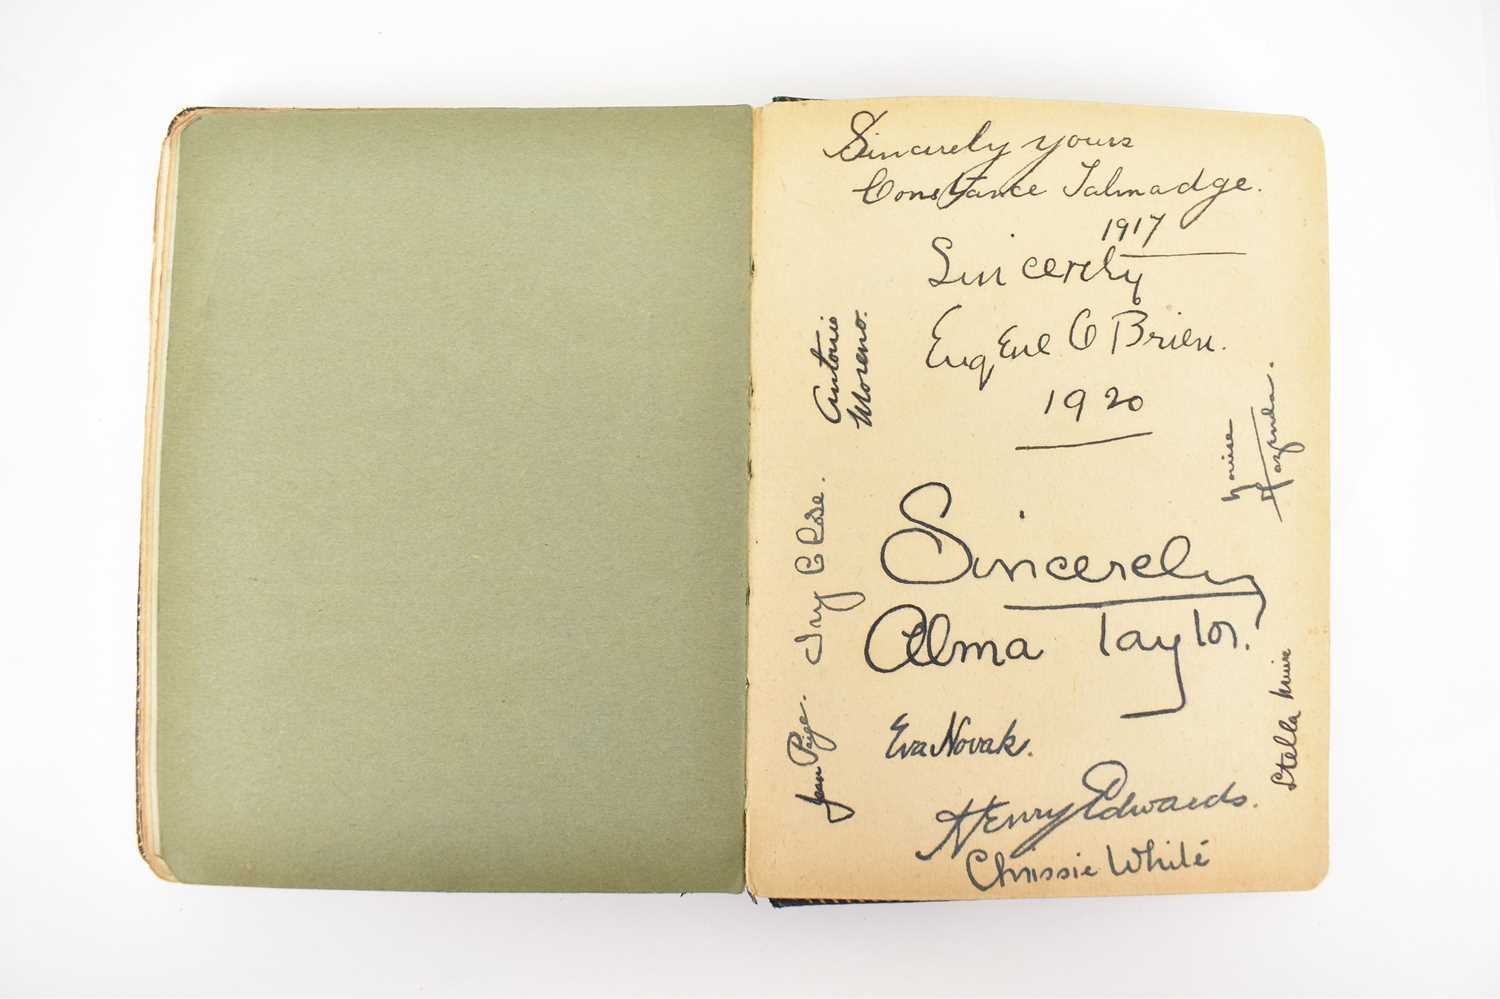 Sincerely yours
Constance Talmadge.
1917
Sincerely
Eugene O Brien.
1920
Antonio
Moreno.
Louise
Fazenda.
Ivy Close.
Sincerely
Alma Taylor.
Jean Paige.
Stella Muir
Eva Novak.
Henry Edwards.
Chrissie White